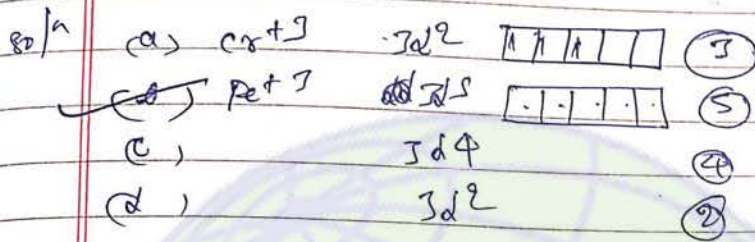 soln (a) Cr+3 3d2 ③
(b) Fe+3 3d5 ⑤
(c) 3d4 ④
(d) 3d2 ②